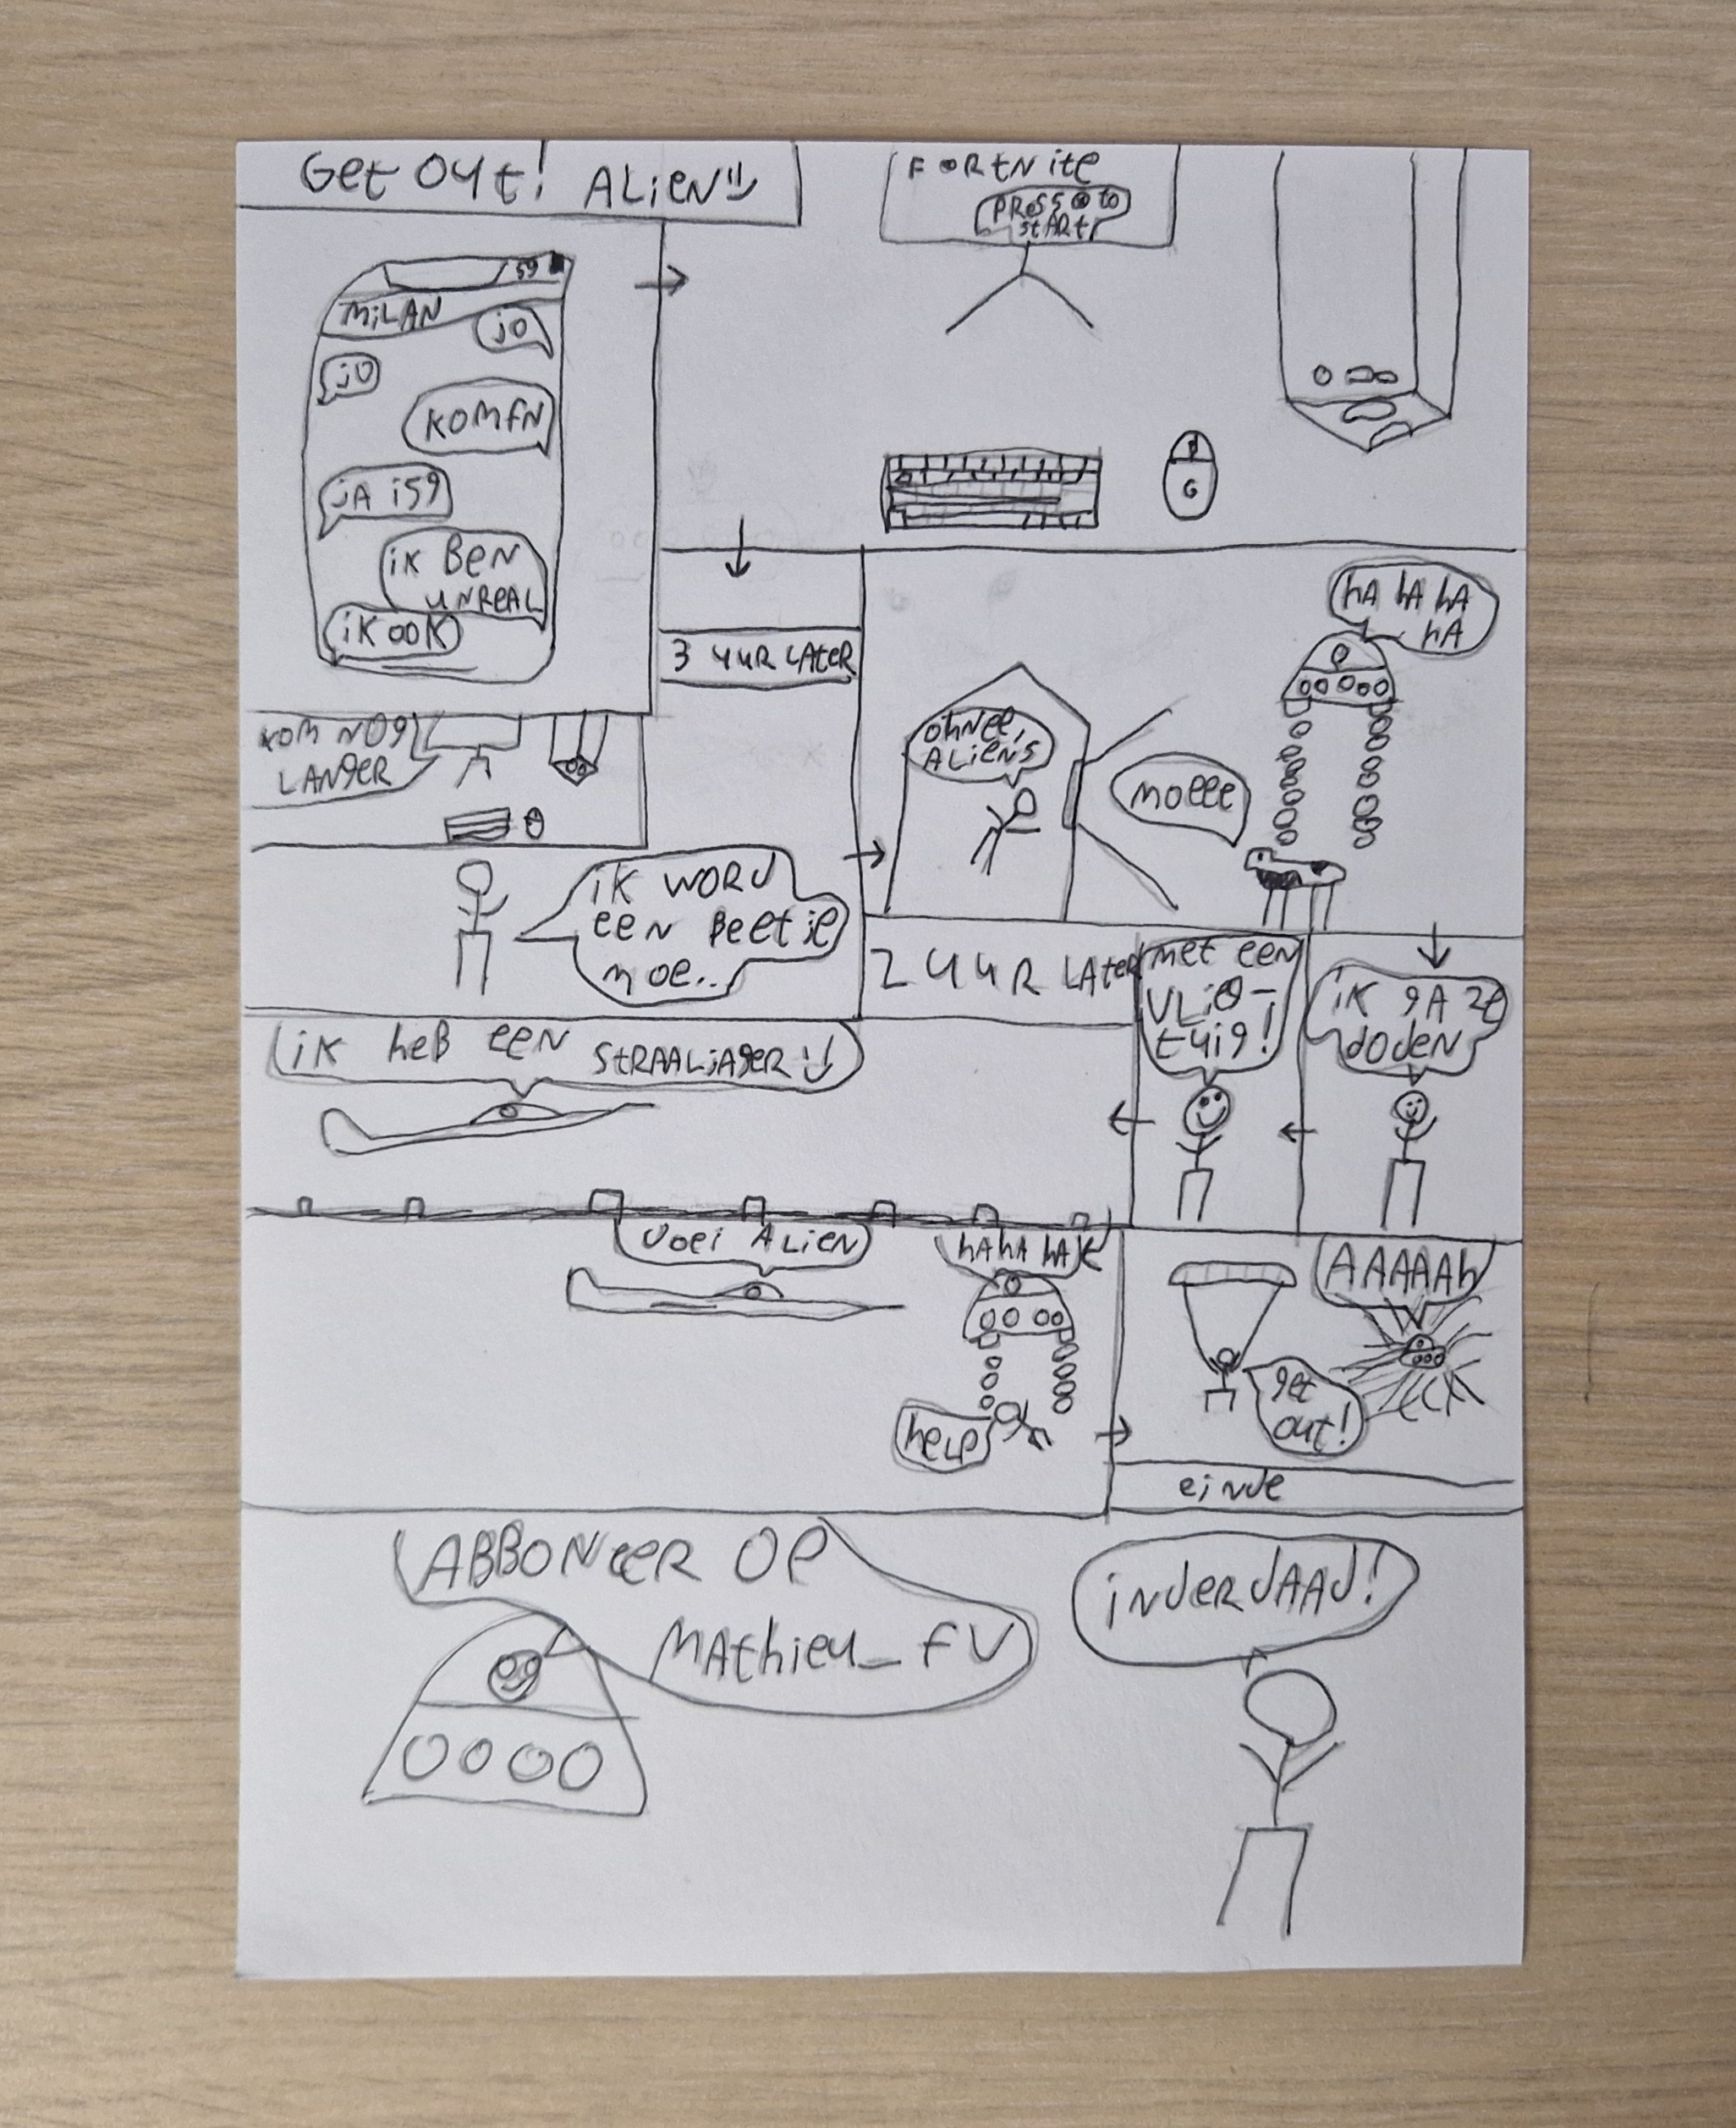 Get OUt! ALieN
59
MiLAN
jo
jo
KOM FN
jA i59
iK BEN
UNREAL
iK OOK
FORtNite
PRESS @ to
StARt
3 UUR LAteR
KOM NOg
LANgER
iK WORd
eeN Beetje
moe..
hA hA hA
hA
ohNee,
ALieNs
moeee
2 UUR LAteR
iK gA ze
doden
met een
VLieg-
tuig!
iK heB eeN StRAALjAgeR
doei ALieN
hAhA hA
help
AAAAAh
get
out!
einde
ABBONeeR OP
MAthieu_FV
iNderdAAd!